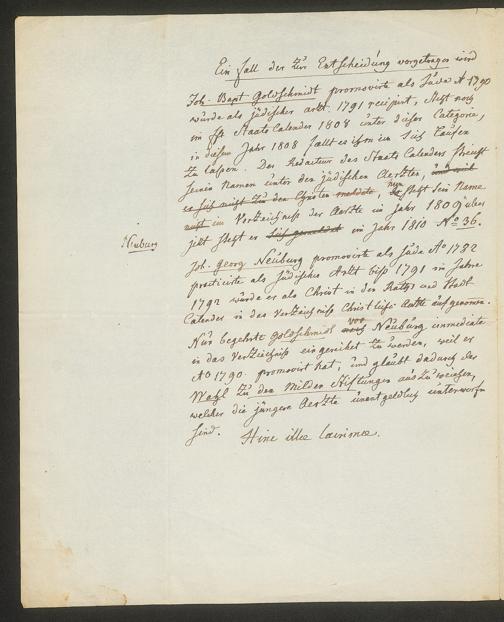 Ein fall der zur Entscheidung vorgetragen wird
Joh. Bapt Goldschmidt promovirte als Jude Aº 1790
wurde als jüdischer arzt 1791 recipirt, steht noch
im Staats Calender 1808 unter dieser Categorie,
in diesem Jahr 1808 fällt es ihm ein sich taufen
zu lassen. Der Redacteur des Staats Calenders streicht
seinen Namen unter den jüdischen Aerzten, und weil
er sich nicht zu den Christen meldete, steht sein Name
nicht im Verzeichniß der Aerzte im Jahr 1809 aber
jetzt steht er sich gemeldet im Jahr 1810 Nº 36.
Neuburg
Joh. Georg Neuburg promovirte als Jude Aº 1782
practicirte als Jüdischer Arzt biß 1791 im Jahre
1792 wurde er als Christ in den Raths und Stadt
Calender in das Verzeichniß Christliche Aerzte aufgenom̄en.
Nun begehrte Goldschmidt vor Neuburg immediate
in das Verzeichniß eingereihet zu werden, weil er
Aº 1790 promovirt hat, und glaubt dadurch der
Wahl zu den Milden Stiftungen auszuweichen,
welcher die jüngere Aerzte unentgeldlich unterworfen
sind. Hinc illæ lacrimæ.